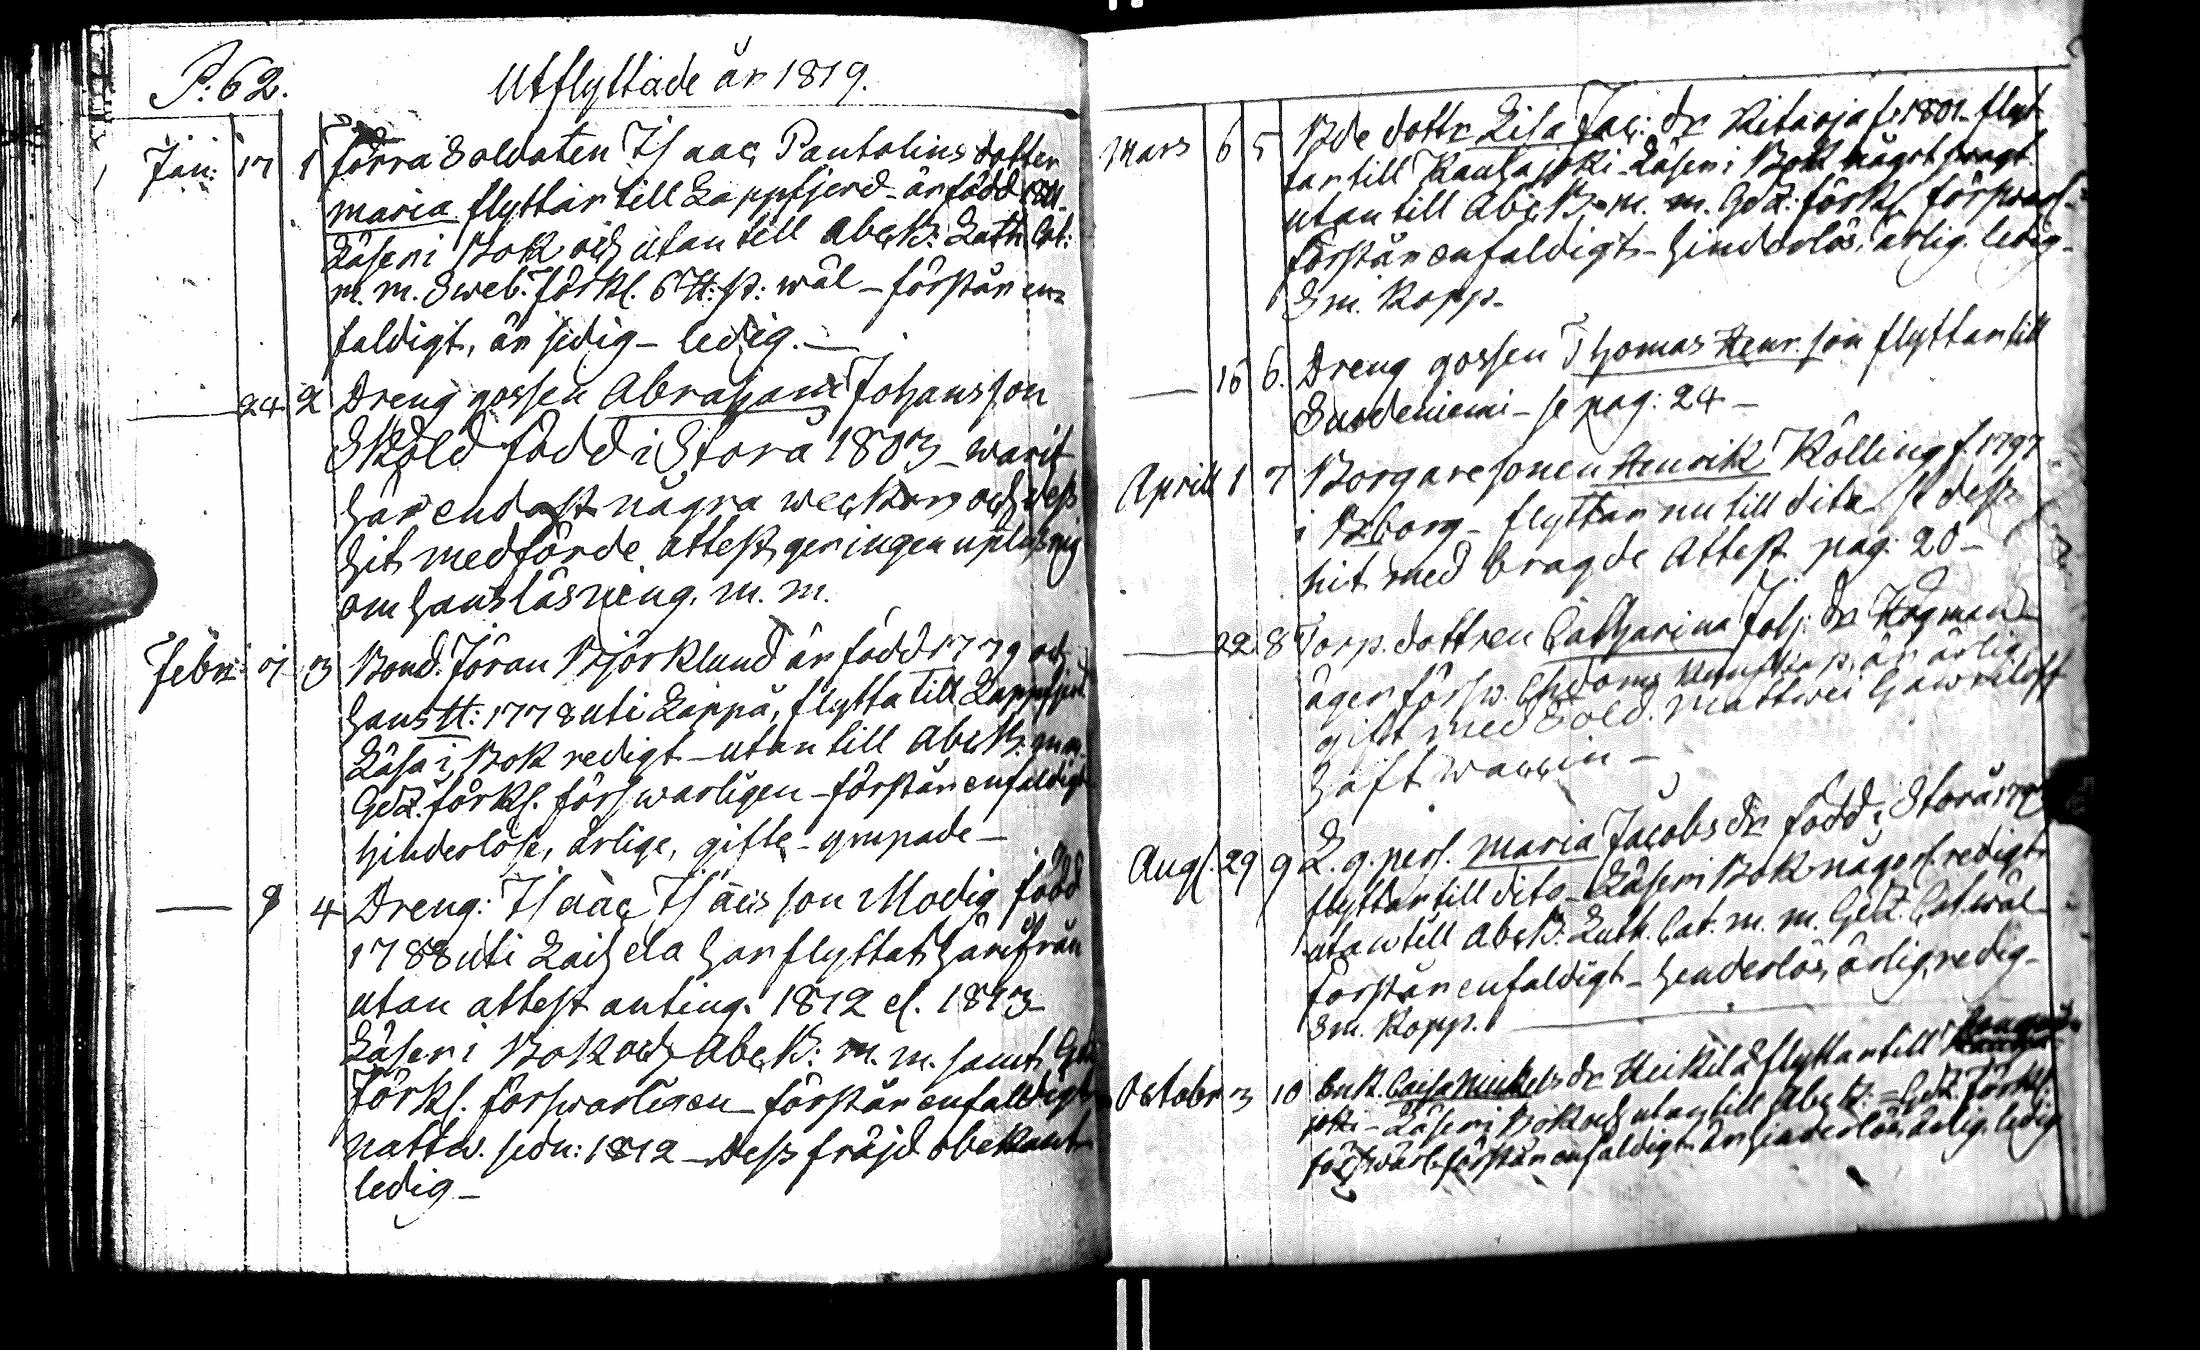 P: 62. Utflyttade år 1819.
Jan: 17 1 Förra Soldaten Isaac Pantolins dotter
Maria flyttar till Lappfjerd - är född
Läser i Bok och utan till AbcB: Luth. Cat:
m. m. Sweb. Förkl. wäl - förstår en=
faldigt, är sedig - ledig. —
— 24 2 Dreng gossen Abraham Johansson
Sköld född i Storå 1803 - warit
här endast några weckor och dess
hit medförde attest ger ingen uplysnig
om hans läsning. m. m.
Febr: 7 3 Bond. Jöran Björklund är född 1779 och
hans H: 1778 uti Lappå, flytta till Lappfjerd
Läsa i Bok redigt - utan till AbcB: m m.
GeZ. förkl. förswarligen - förstår enfaldigt
hinderlöse, ärlige, gifte - ympade —
— 9 4 Dreng: Isaac Isacsson Modig född
1788 uti Laihela har flyttat härifrån
utan attest anting. 1812 el. 1813
Läser i Bok och AbcB: m. m. samt GeZ
Förkl. förswarligen - förstår enfalldigt
nattw. sedn: 1812 - Dess fräjd obekant
ledig —
Mars 6 5 Bde dottr Lisa Jac: dr Kitarja f. 1801 - flyt
tar till Kauhajoki - Läser i Bok något swagt
utan till AbcB - m. m. GeZ: förkl. förswarl -
förstår enfaldigt - hinderlös, ärlig. ledig -
Sm. Kopp -
— 16 6. Dreng gossen Thomas Henr. son flyttar till
Suodeniemi - se pag: 24 —
Aprill 1 7 Borgare sonen Henrik Kölling f. 1797
i B:borg - flyttar nu till dito se dess
hit med bragde Attest pag: 20 —
— 22. 8 Torp. dottren Catharina Joh: dr Hagman
äger försw. Chrdoms kunskap, är ärlig,
gift med Sold. Mattwei Gawriloff
haft waccin —
Aug. 29 9 L. g. pers. Maria Jacobs dr född i Storå
flyttar till dito - Läser i Bok någorl. redigt
utantill AbcB: Luth. Cat. m. m. GeZ. Cat. wäl
förstår enfaldigt - hinderlös, ärlig, redig -
Sm. Kopp. —
October 3 10 Enk. Caisa Michels dr Heikilä flyttar till
joki - Läser i Bok och utan till AbcB: = GeZ. Förkl.
förswarl. förstår enfaldigt är hinderlös, ärlig. ledig